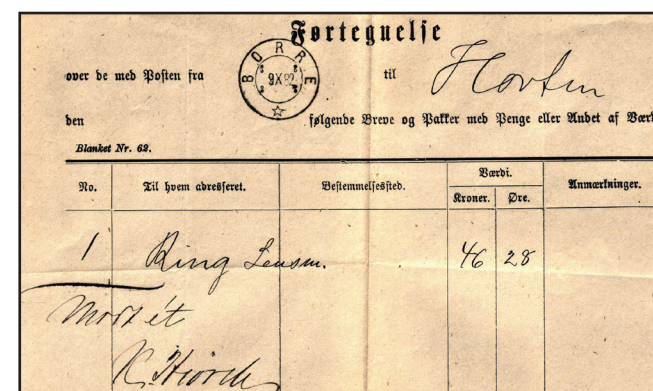 Fortegnelse
over de med Posten fra BORRE 9 X 82 til Horten
den følgende Breve og Pakker med Penge eller Andet af Værd
Blanket Nr. 62.
No. Til hvem adresseret. Bestemmelsessted. Værdi. Anmærkninger.
Kroner. Øre.
1 Ring Lensm. 46 28